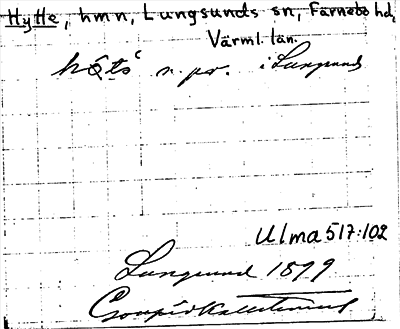 Hytte, hmn, Lungsunds sn, Färnebo hd,
Värml. län.
n. pr. i Lungsund
Ulma 517:102
Lungsund 1899